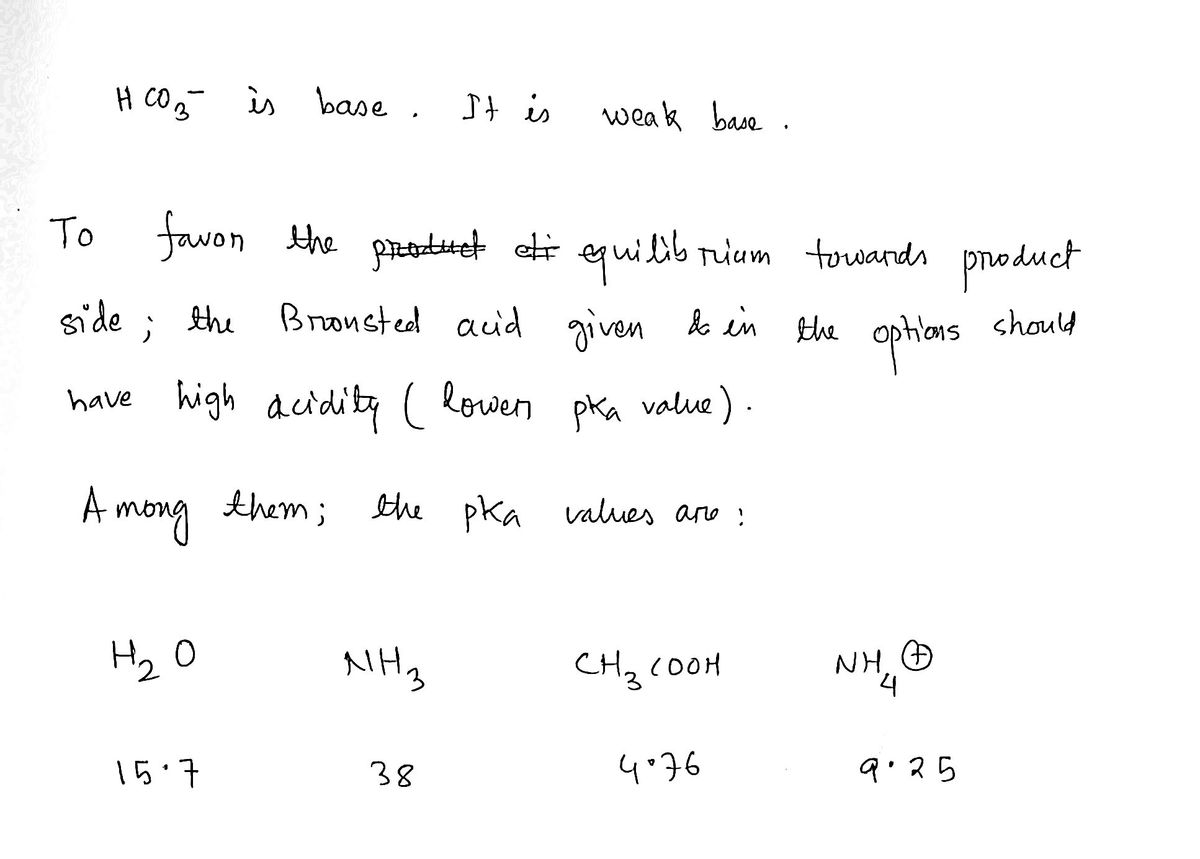 HCO₃⁻ is base. It is weak base.
To favor the product eli equilibrium towards product
side; the Bronsted acid given in the options should
have high acidity (lower pka value).
Among them; the pKa values are:
H₂O NH₃ CH₃COOH NH₄⊕
15.7 38 4.76 9.25